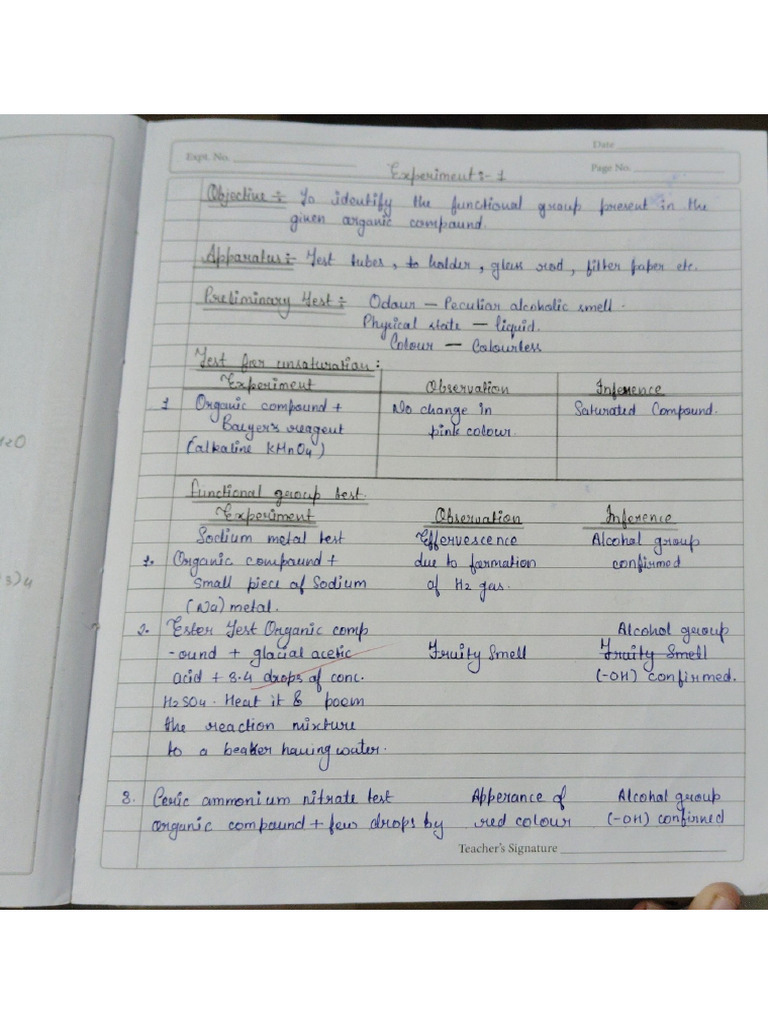 Date
Expt. No.
Page No.
Experiment:- 1
Objective :- To identify the functional group present in the
given organic compound.
Apparatus:- Test tubes, to holder, glass rod, filter paper etc.
Preliminary Test :- Odour — Peculiar alcoholic smell.
Physical state — liquid.
Colour — Colourless
Test for unsaturation :
Experiment Observation Inference
1 Organic compound + No change in Saturated Compound.
Baeyer's reagent pink colour.
(alkaline KMnO4)
Functional group test.
Experiment Observation Inference
Sodium metal test Effervescence Alcohol group
1. Organic compound + due to formation confirmed
small piece of Sodium of H2 gas.
(Na) metal.
2. Ester Test Organic comp Alcohol group
-ound + glacial acetic Fruity Smell Fruity Smell
acid + 3.4 drops of conc. (-OH) confirmed.
H2SO4. Heat it & poem
the reaction mixture
to a beaker having water.
3. Ceric ammonium nitrate test Apperance of Alcohol group
organic compound + few drops by red colour (-OH) confirmed
Teacher's Signature